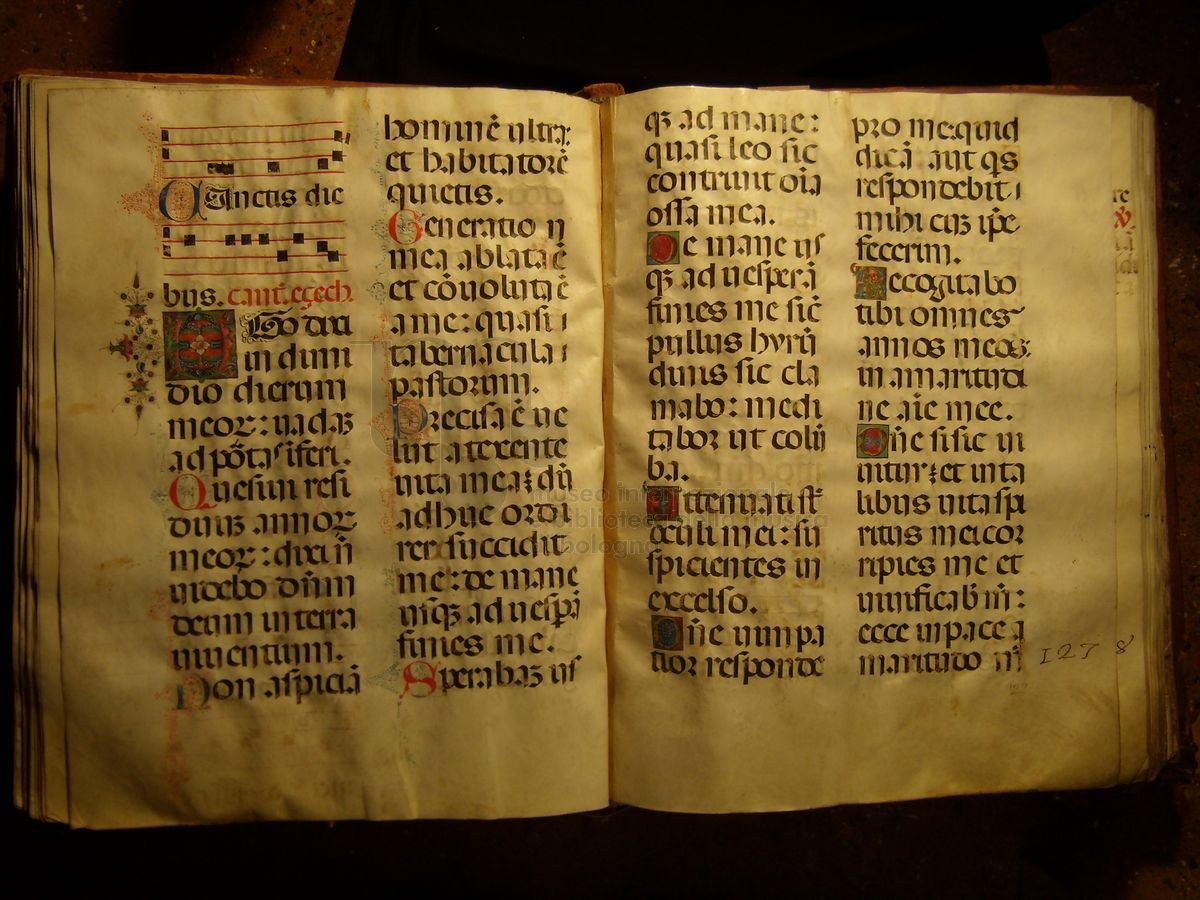 Sanctis die
bus. cant. ezech.
EGo dixi
in dimi
dio dierum
meoꝝ: uadaʒ
ad pōtas iferi.
Quesiui resi
duuʒ annoꝝ
meoꝝ: dixi ñ
uidebo dn̄m
deum in terra
uiuentium.
Non aspiciā
hominē ultra:
et habitatorē
quietis.
Generatio
mea ablata ē
et cōuoluta ē
a me: quasi
tabernacula
pastorum.
Precisa ē ue
lut a texente
uita mea: dū
adhuc ordi
rer succidit
me: de mane
usqʒ ad uespā
finies me.
Sperabaʒ us
qʒ ad mane:
quasi leo sic
contriuit oīa
ossa mea.
De mane us
qʒ ad uesperā
finies me sic̄
pullus hyrū
dinis sic cla
mabo: medi
tabor ut colū
ba.
Attenuati st̄
oculi mei: su
spicientes in
excelso.
Dn̄e uim pa
tior responde
pro me: quid
dicā aut qs
respondebit
mihi cuʒ ip̄e
fecerim.
Recogitabo
tibi omnes
annos meos:
in amaritudi
ne aīe mee.
Dn̄e si sic ui
uitur: et in ta
libus uita spi
ritus mei cor
ripies me et
uiuificab̄ m̄:
ecce in pace a
maritudo m̄
127 8
museo internazionale
e biblioteca della musica
bologna